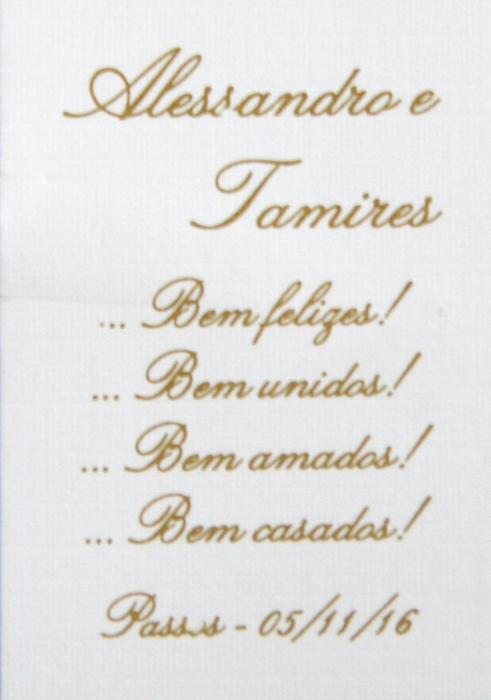 Alessandro e
Tamires
... Bem felizes!
... Bem unidos!
... Bem amados!
... Bem casados!
Passos - 05/11/16